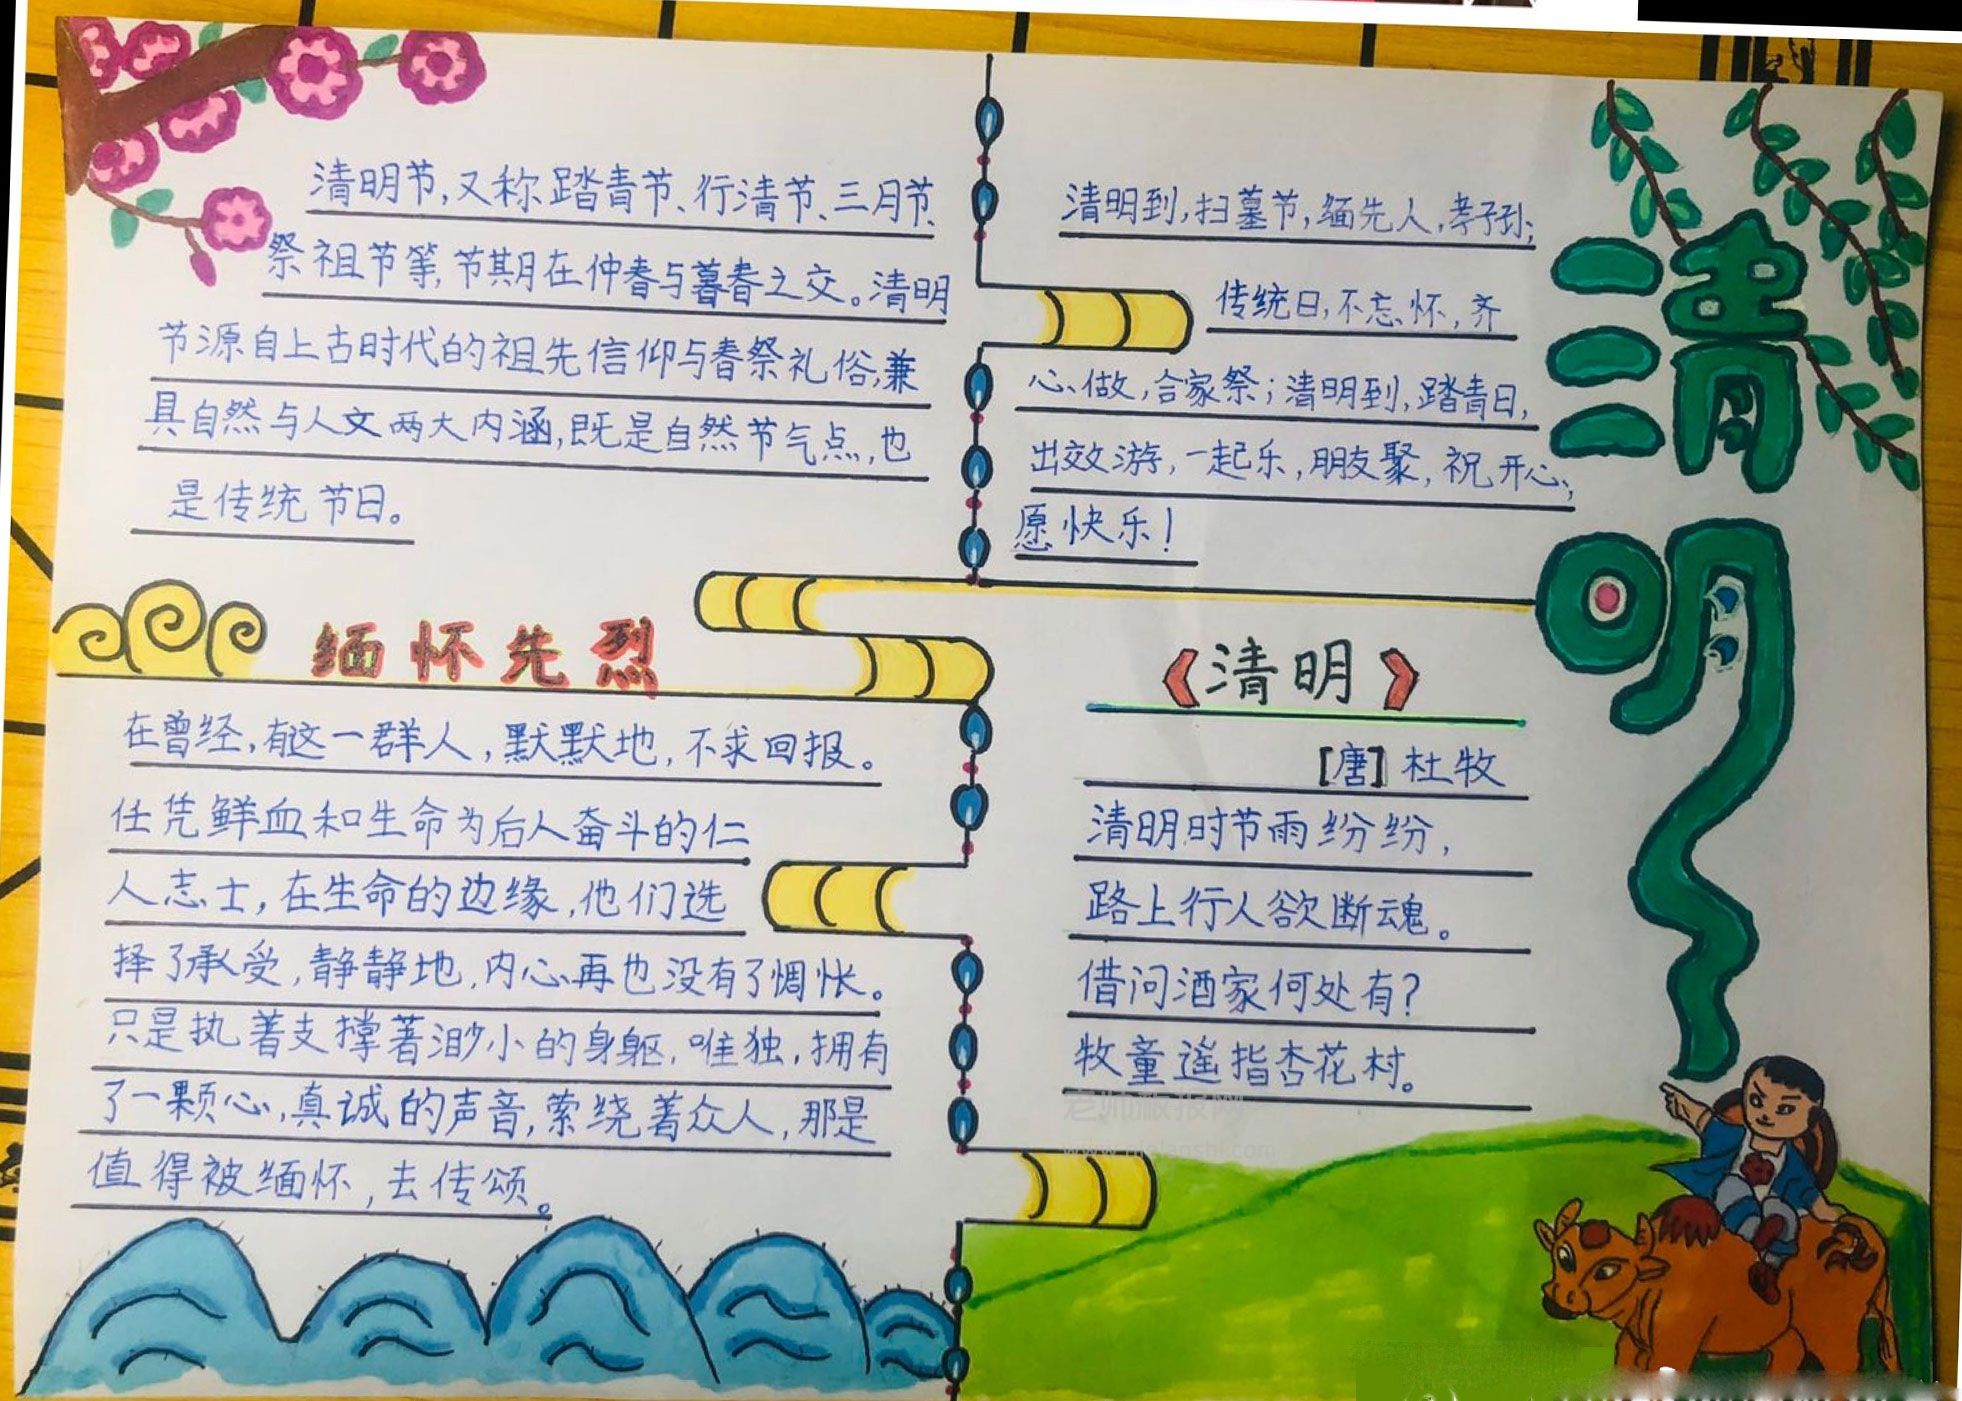 清明节,又称踏青节、行清节、三月节、
祭祖节等,节期在仲春与暮春之交。清明
节源自上古时代的祖先信仰与春祭礼俗,兼
具自然与人文两大内涵,既是自然节气点,也
是传统节日。
清明到,扫墓节,缅先人,孝子孙;
传统日,不忘怀,齐
心做,合家祭;清明到,踏青日,
出效游,一起乐,朋友聚,祝开心,
愿快乐!
清明
缅怀先烈
在曾经,有这一群人,默默地,不求回报。
任凭鲜血和生命为后人奋斗的仁
人志士,在生命的边缘,他们选
择了承受,静静地,内心再也没有了惆怅。
只是执着支撑著渺小的身躯,唯独,拥有
了一颗心,真诚的声音,萦绕着众人,那是
值得被缅怀,去传颂。
《清明》
[唐]杜牧
清明时节雨纷纷,
路上行人欲断魂。
借问酒家何处有?
牧童遥指杏花村。
老师板报网